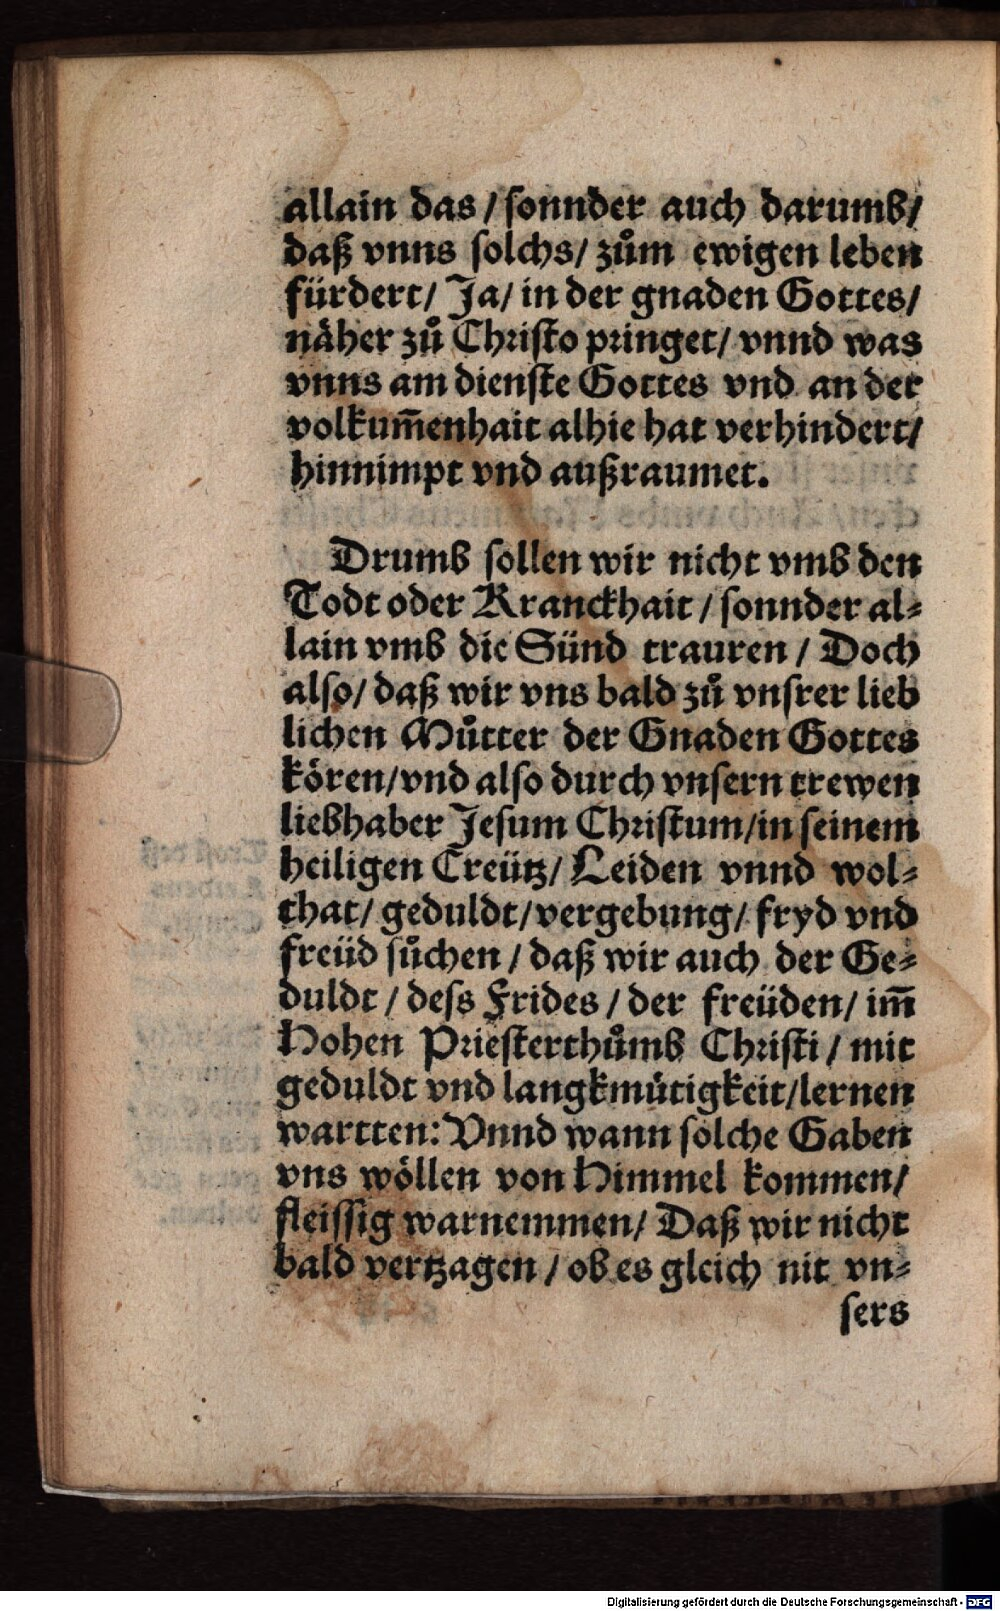 allain das / sonnder auch darumb/
daß vnns solchs/ zům ewigen leben
fürdert/ Ja/ in der gnaden Gottes/
näher zů Christo pringet/ vnnd was
vnns am dienste Gottes vnd an der
volkum̃enhait alhie hat verhindert/
hinnimpt vnd außraumet.
Drumb sollen wir nicht vmb den
Todt oder Kranckhait / sonnder al⸗
lain vmb die Sünd trauren / Doch
also/ daß wir vns bald zů vnsrer lieb
lichen Můtter der Gnaden Gottes
kören/vnd also durch vnsern trewen
liebhaber Jesum Christum/in seinem
heiligen Creütz/ Leiden vnnd wol⸗
that/ geduldt/vergebung/ fryd vnd
freüd sůchen / daß wir auch der Ge⸗
duldt / dess Frides / der freüden/ im̃
Hohen Priesterthůmb Christi / mit
geduldt vnd langkmütigkeit/lernen
wartten: Vnnd wann solche Gaben
vns wöllen von Himmel kommen/
fleissig warnemmen/ Daß wir nicht
bald vertzagen / ob es gleich nit vn⸗
sers
Digitalisierung gefördert durch die Deutsche Forschungsgemeinschaft - DFG